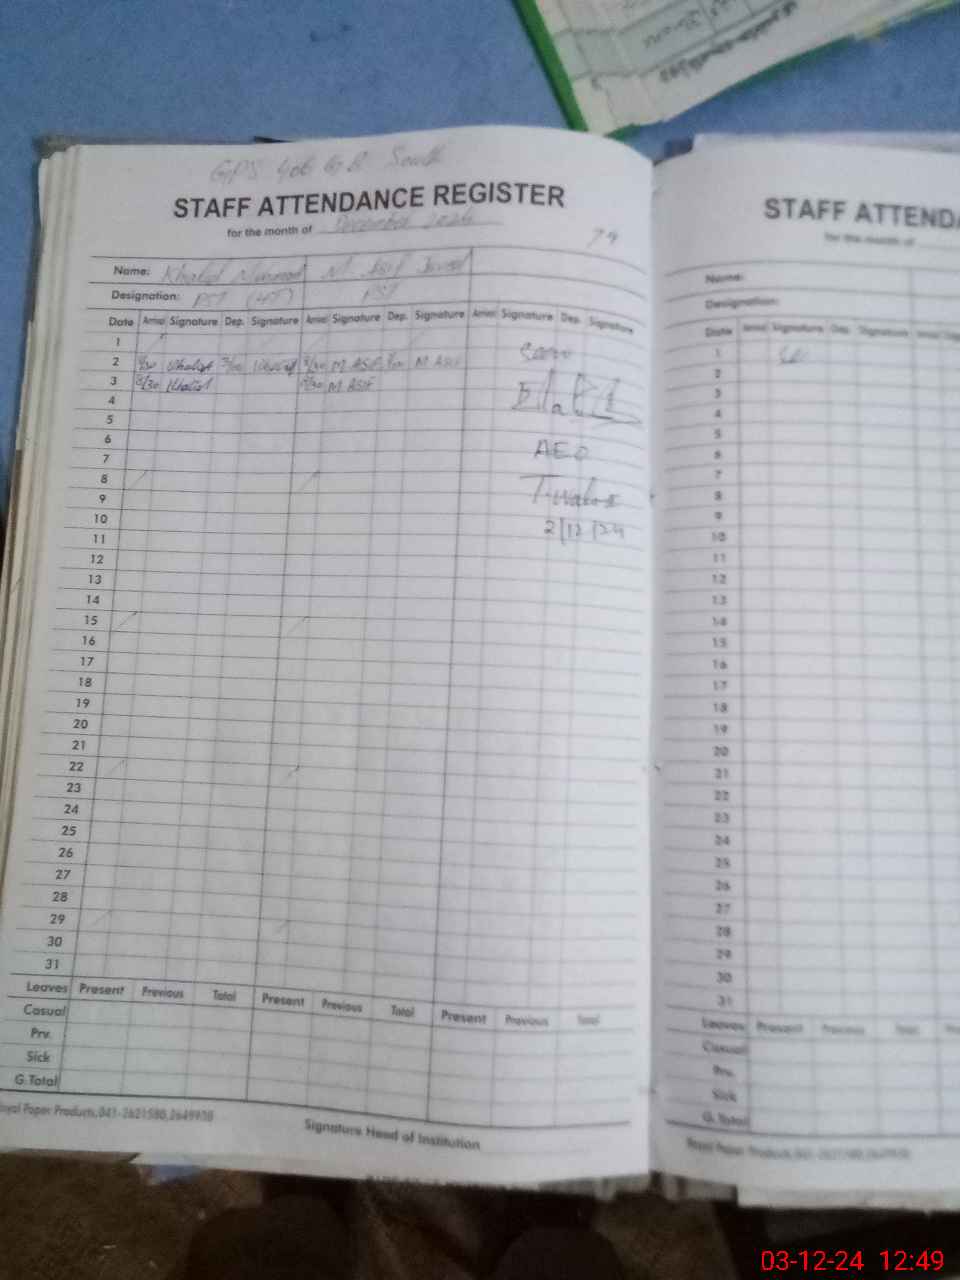 GPS 406 G.B South
STAFF ATTENDANCE REGISTER
for the month of December 2024
79
Name: Khalid M. Asif Javed
Designation: PST PST
Date Arrival Signature Dep. Signature Arrival Signature Dep. Signature Arrival Signature Dep. Signature
1
2 8/30 Khalid Khalid 8/30 M ASIF M ASIF
3 8/30 Khalid 8/30 M ASIF
4
5
6
AEO
7
8
9
2/12/24
10
11
12
13
14
15
16
17
18
19
20
21
22
23
24
25
26
27
28
29
30
31
Leaves Present Previous Total Present Previous Total Present Previous Total
Casual
Prv.
Sick
G.Total
Royal Paper Products,041-2621580,2649938
Signature Head of Institution
STAFF ATTENDA
for the month of
Name:
Designation:
Date Arrival Signature Dep. Signature Arrival
1
2
3
4
5
6
7
8
9
10
11
12
13
14
15
16
17
18
19
20
21
22
23
24
25
26
27
28
29
30
31
Leaves Present Previous Total
Casual
Prv.
Sick
G.Total
Royal Paper Products,041-2621580,2649938
03-12-24 12:49